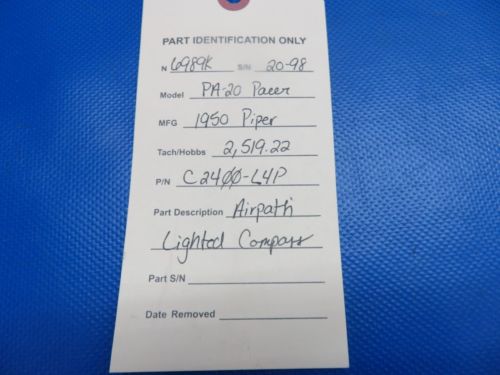 PART IDENTIFICATION ONLY
N 6989K S/N 20-98
Model PA-20 Pacer
MFG 1950 Piper
Tach/Hobbs 2,519.22
P/N C2400-L4P
Part Description Airpath
Lighted Compass
Part S/N
Date Removed